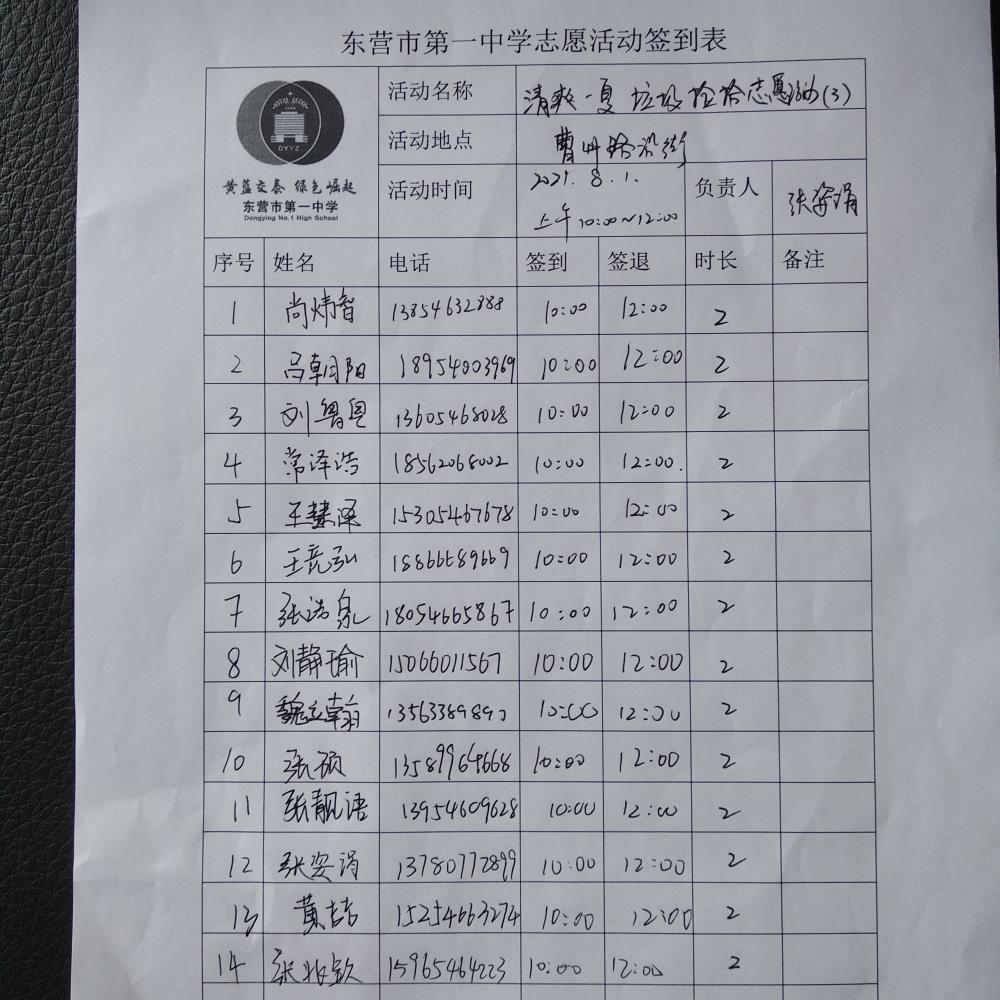 东营市第一中学志愿活动签到表
DYYZ
黄蓝交泰 绿色崛起
东营市第一中学
Dongying No.1 High School
活动名称 清爽一夏 垃圾捡拾志愿活动(3)
活动地点 曹州路沿街
活动时间 2021.8.1. 上午10:00~12:00 负责人 张姿娟
序号 姓名 电话 签到 签退 时长 备注
1 尚炜智 13854632888 10:00 12:00 2
2 吕朝阳 18954003969 10:00 12:00 2
3 刘鲁粤 13605468028 10:00 12:00 2
4 常泽浩 18562068002 10:00 12:00. 2
5 王慧泽 15305467678 10:00 12:00 2
6 王竞弘 18866689669 10:00 12:00 2
7 张浩泉 18054665867 10:00 12:00 2
8 刘静瑜 15066011567 10:00 12:00 2
9 魏立翰 10:00 12:00 2
10 张硕 13589964668 10:00 12:00 2
11 张靓语 13954609628 10:00 12:00 2
12 张姿娟 13780772899 10:00 12:00 2
13 黄喆 15254663274 10:00 12:00 2
14 张 15965464223 10:00 12:00 2